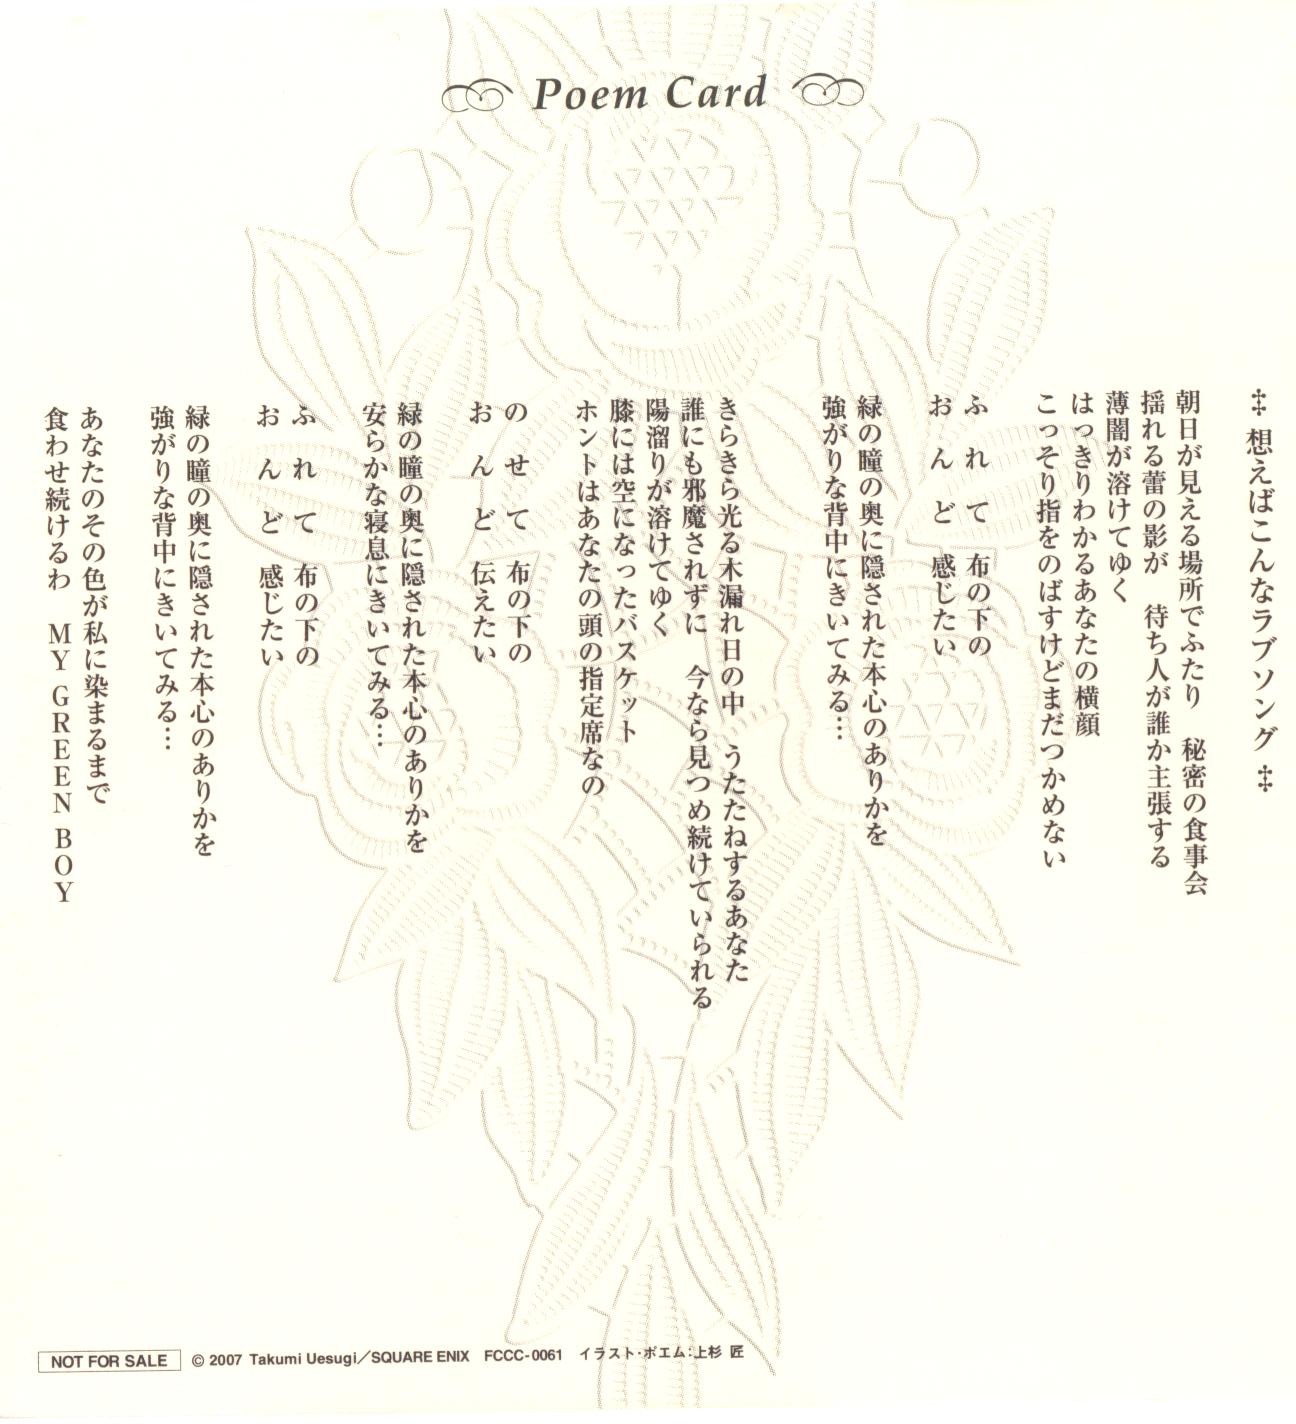 Poem Card
‡ 想えばこんなラブソング ‡
朝日が見える場所でふたり　秘密の食事会
揺れる蕾の影が　待ち人が誰か主張する
薄闇が溶けてゆく
はっきりわかるあなたの横顔
こっそり指をのばすけどまだつかめない
ふれて　布の下の
おんど　感じたい
緑の瞳の奥に隠された本心のありかを
強がりな背中にきいてみる…
きらきら光る木漏れ日の中　うたたねするあなた
誰にも邪魔されずに　今なら見つめ続けていられる
陽溜りが溶けてゆく
膝には空になったバスケット
ホントはあなたの頭の指定席なの
のせて　布の下の
おんど　伝えたい
緑の瞳の奥に隠された本心のありかを
安らかな寝息にきいてみる…
ふれて　布の下の
おんど　感じたい
緑の瞳の奥に隠された本心のありかを
強がりな背中にきいてみる…
あなたのその色が私に染まるまで
食わせ続けるわ　MY GREEN BOY
NOT FOR SALE © 2007 Takumi Uesugi／SQUARE ENIX FCCC-0061 イラスト・ポエム:上杉 匠